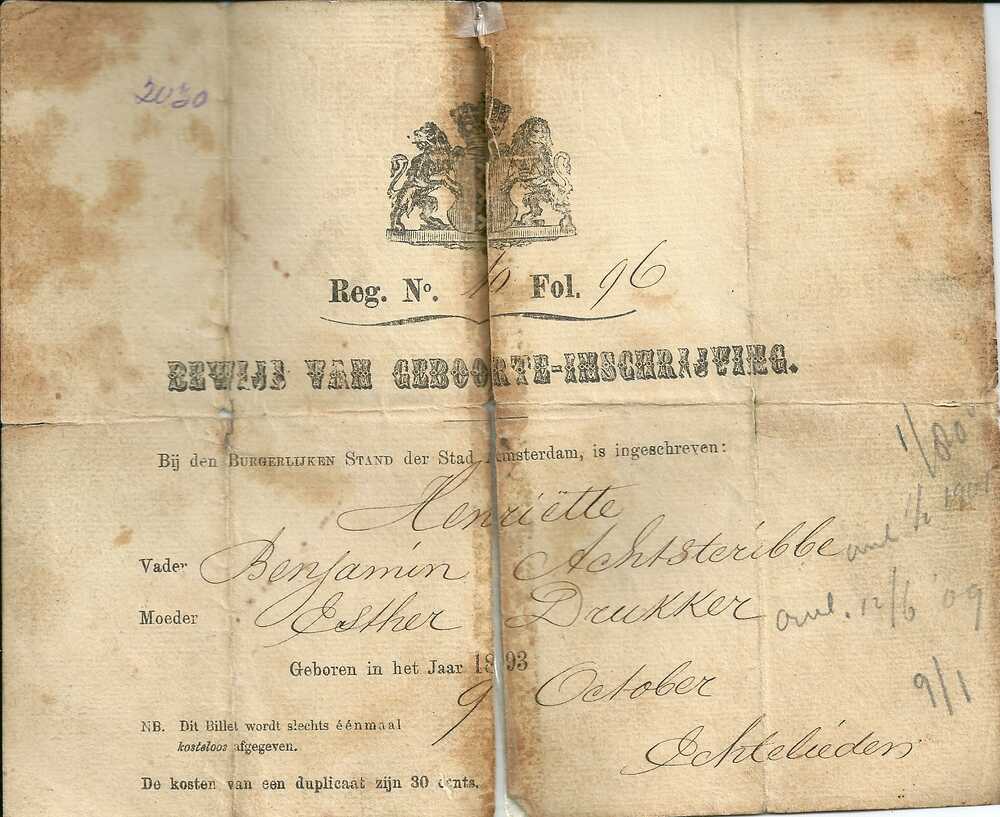 2030
Reg. No. 40 Fol. 96
BEWIJS VAN GEBOORTE-INSCHRIJVING.
Bij den BURGERLIJKEN STAND der Stad Amsterdam, is ingeschreven:
Henriëtte
Vader Benjamin Achtsteribbe
Moeder Esther Drukker
Geboren in het Jaar 1893
9 October
Echtelieden
NB. Dit Billet wordt slechts éénmaal
kosteloos afgegeven.
De kosten van een duplicaat zijn 30 cents.
1/80
1/2 1907
12/6 09
9/1